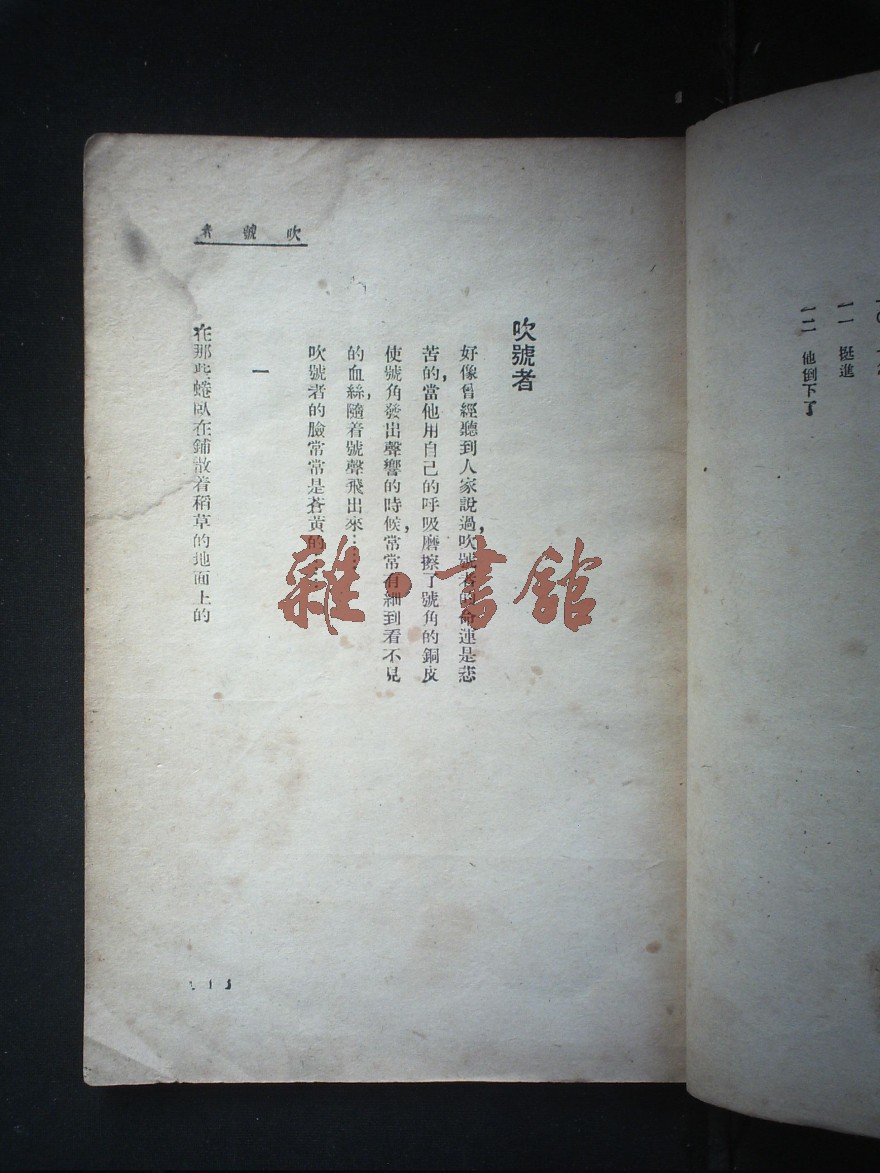 一一 挺進
一二 他倒下了
吹號者
吹號者
好像曾經聽到人家說過，吹號者的命運是悲
苦的，當他用自己的呼吸磨擦了號角的銅皮
使號角發出聲響的時候，常常有細到看不見
的血絲，隨着號聲飛出來……
吹號者的臉常常是蒼黃的
一
在那些蜷臥在鋪散着稻草的地面上的
1
雜·書館